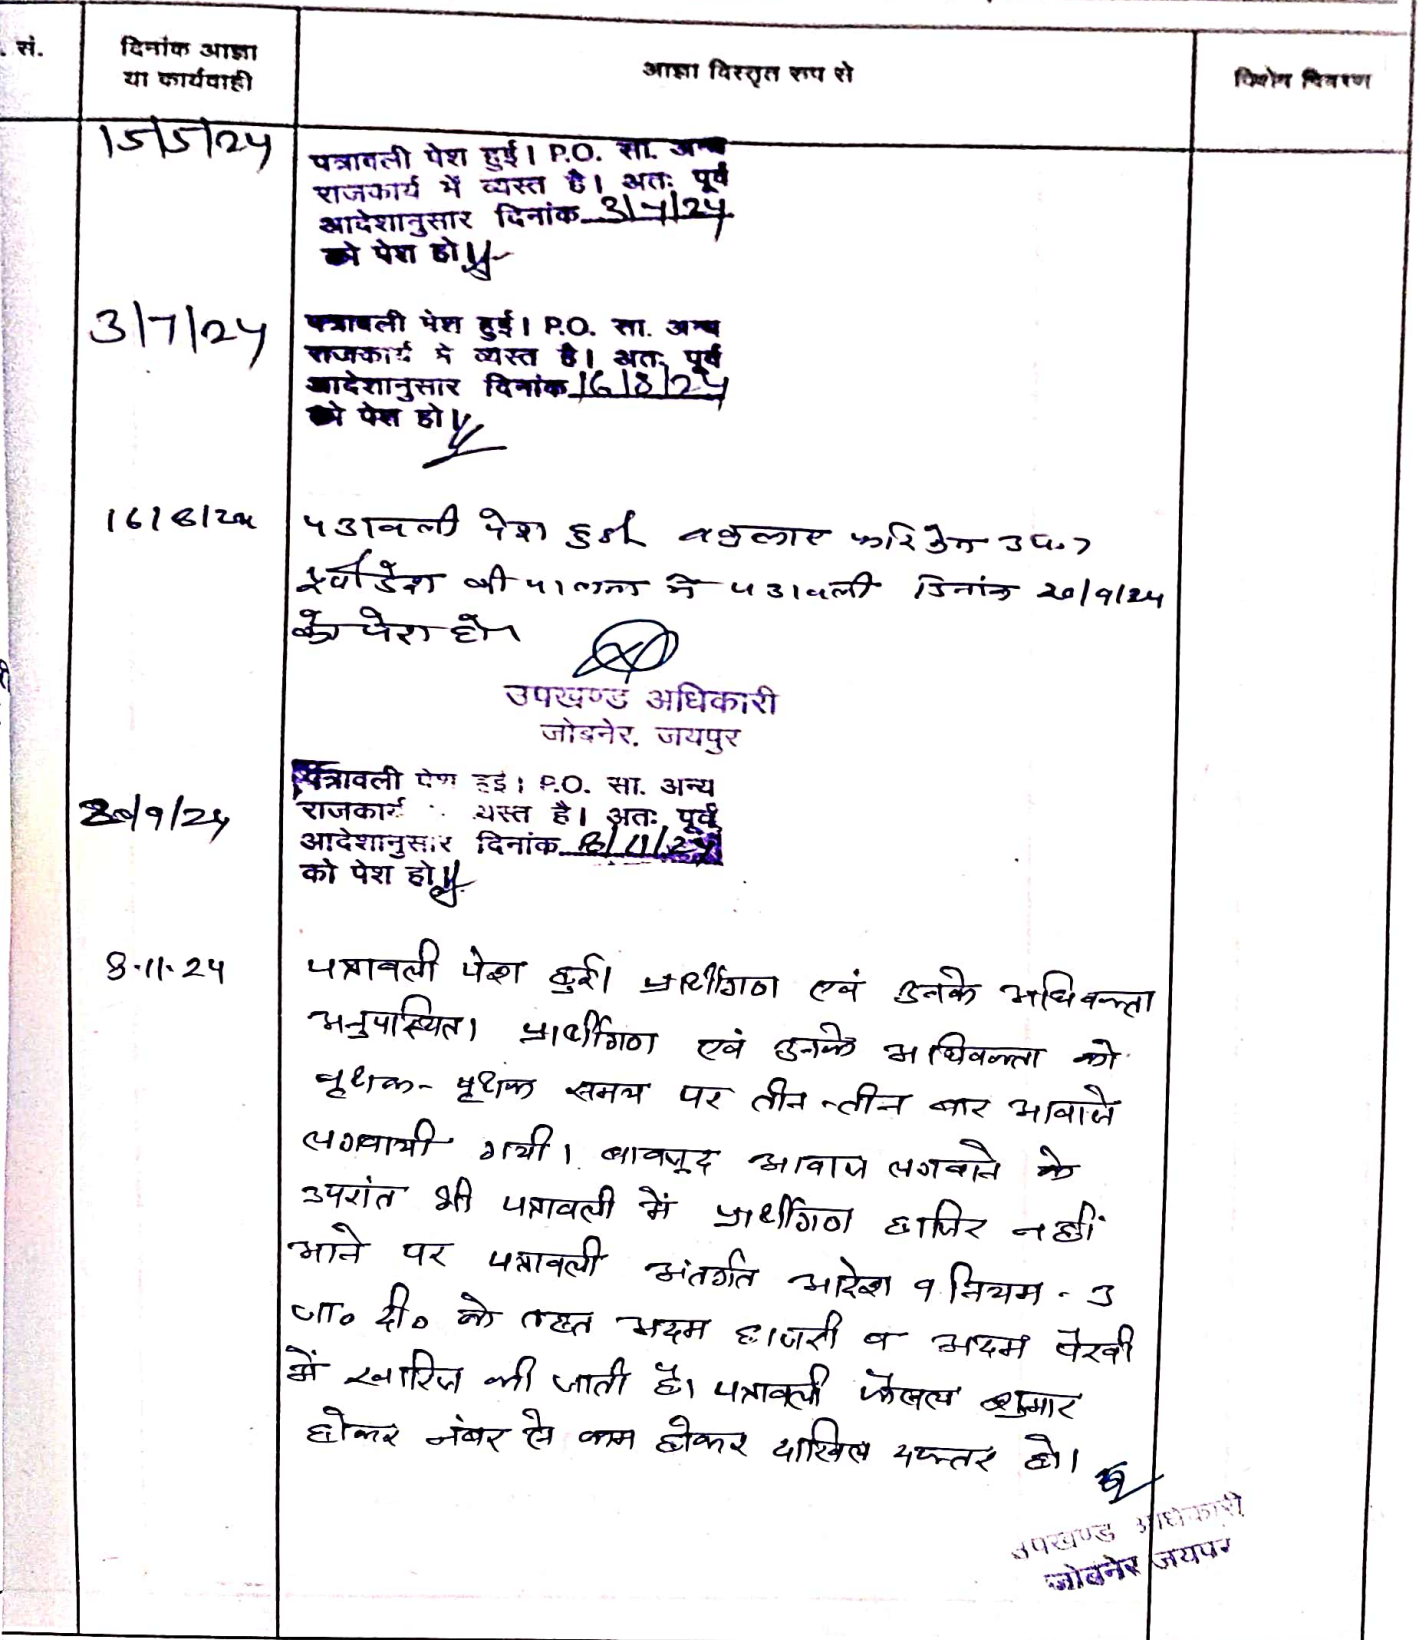 . सं.
दिनांक आज्ञा
या कार्यवाही
आज्ञा विस्तृत रूप से
विशेष विवरण
15/5/24
पत्रावली पेश हुई। P.O. सा. अन्य
राजकार्य में व्यस्त है। अतः पूर्व
आदेशानुसार दिनांक 3/7/24
को पेश हो
3/7/24
पत्रावली पेश हुई। P.O. सा. अन्य
राजकार्य में व्यस्त है। अतः पूर्व
आदेशानुसार दिनांक 16/8/24
को पेश हो
16/8/24
पत्रावली पेश हुई वकुलाए फरिकेन उप.
पूर्वादेश की पालना में पत्रावली दिनांक 20/9/24
को पेश हो।
उपखण्ड अधिकारी
जोबनेर, जयपुर
20/9/24
पत्रावली पेश हुई। P.O. सा. अन्य
राजकार्य व्यस्त है। अतः पूर्व
आदेशानुसार दिनांक 8/11/24
को पेश हो
8.11.24
पत्रावली पेश हुई। प्रार्थीगण एवं उनके अधिवक्ता
अनुपस्थित। प्रार्थीगण एवं उनके अधिवक्ता को
पृथक- पृथक समय पर तीन-तीन बार आवाजे
लगवायी गयी। बावजूद आवाज लगवाने के
उपरांत भी पत्रावली में प्रार्थीगण हाजिर नहीं
आने पर पत्रावली अंतर्गत आदेश 9 नियम - 3
जा० दी० के तहत अदम हाजरी व अदम पैरवी
में खारिज की जाती है। पत्रावली फैसल शुमार
होकर नंबर से कम होकर दाखिल दफ्तर हो।
उपखण्ड अधिकारी
जोबनेर जयपुर